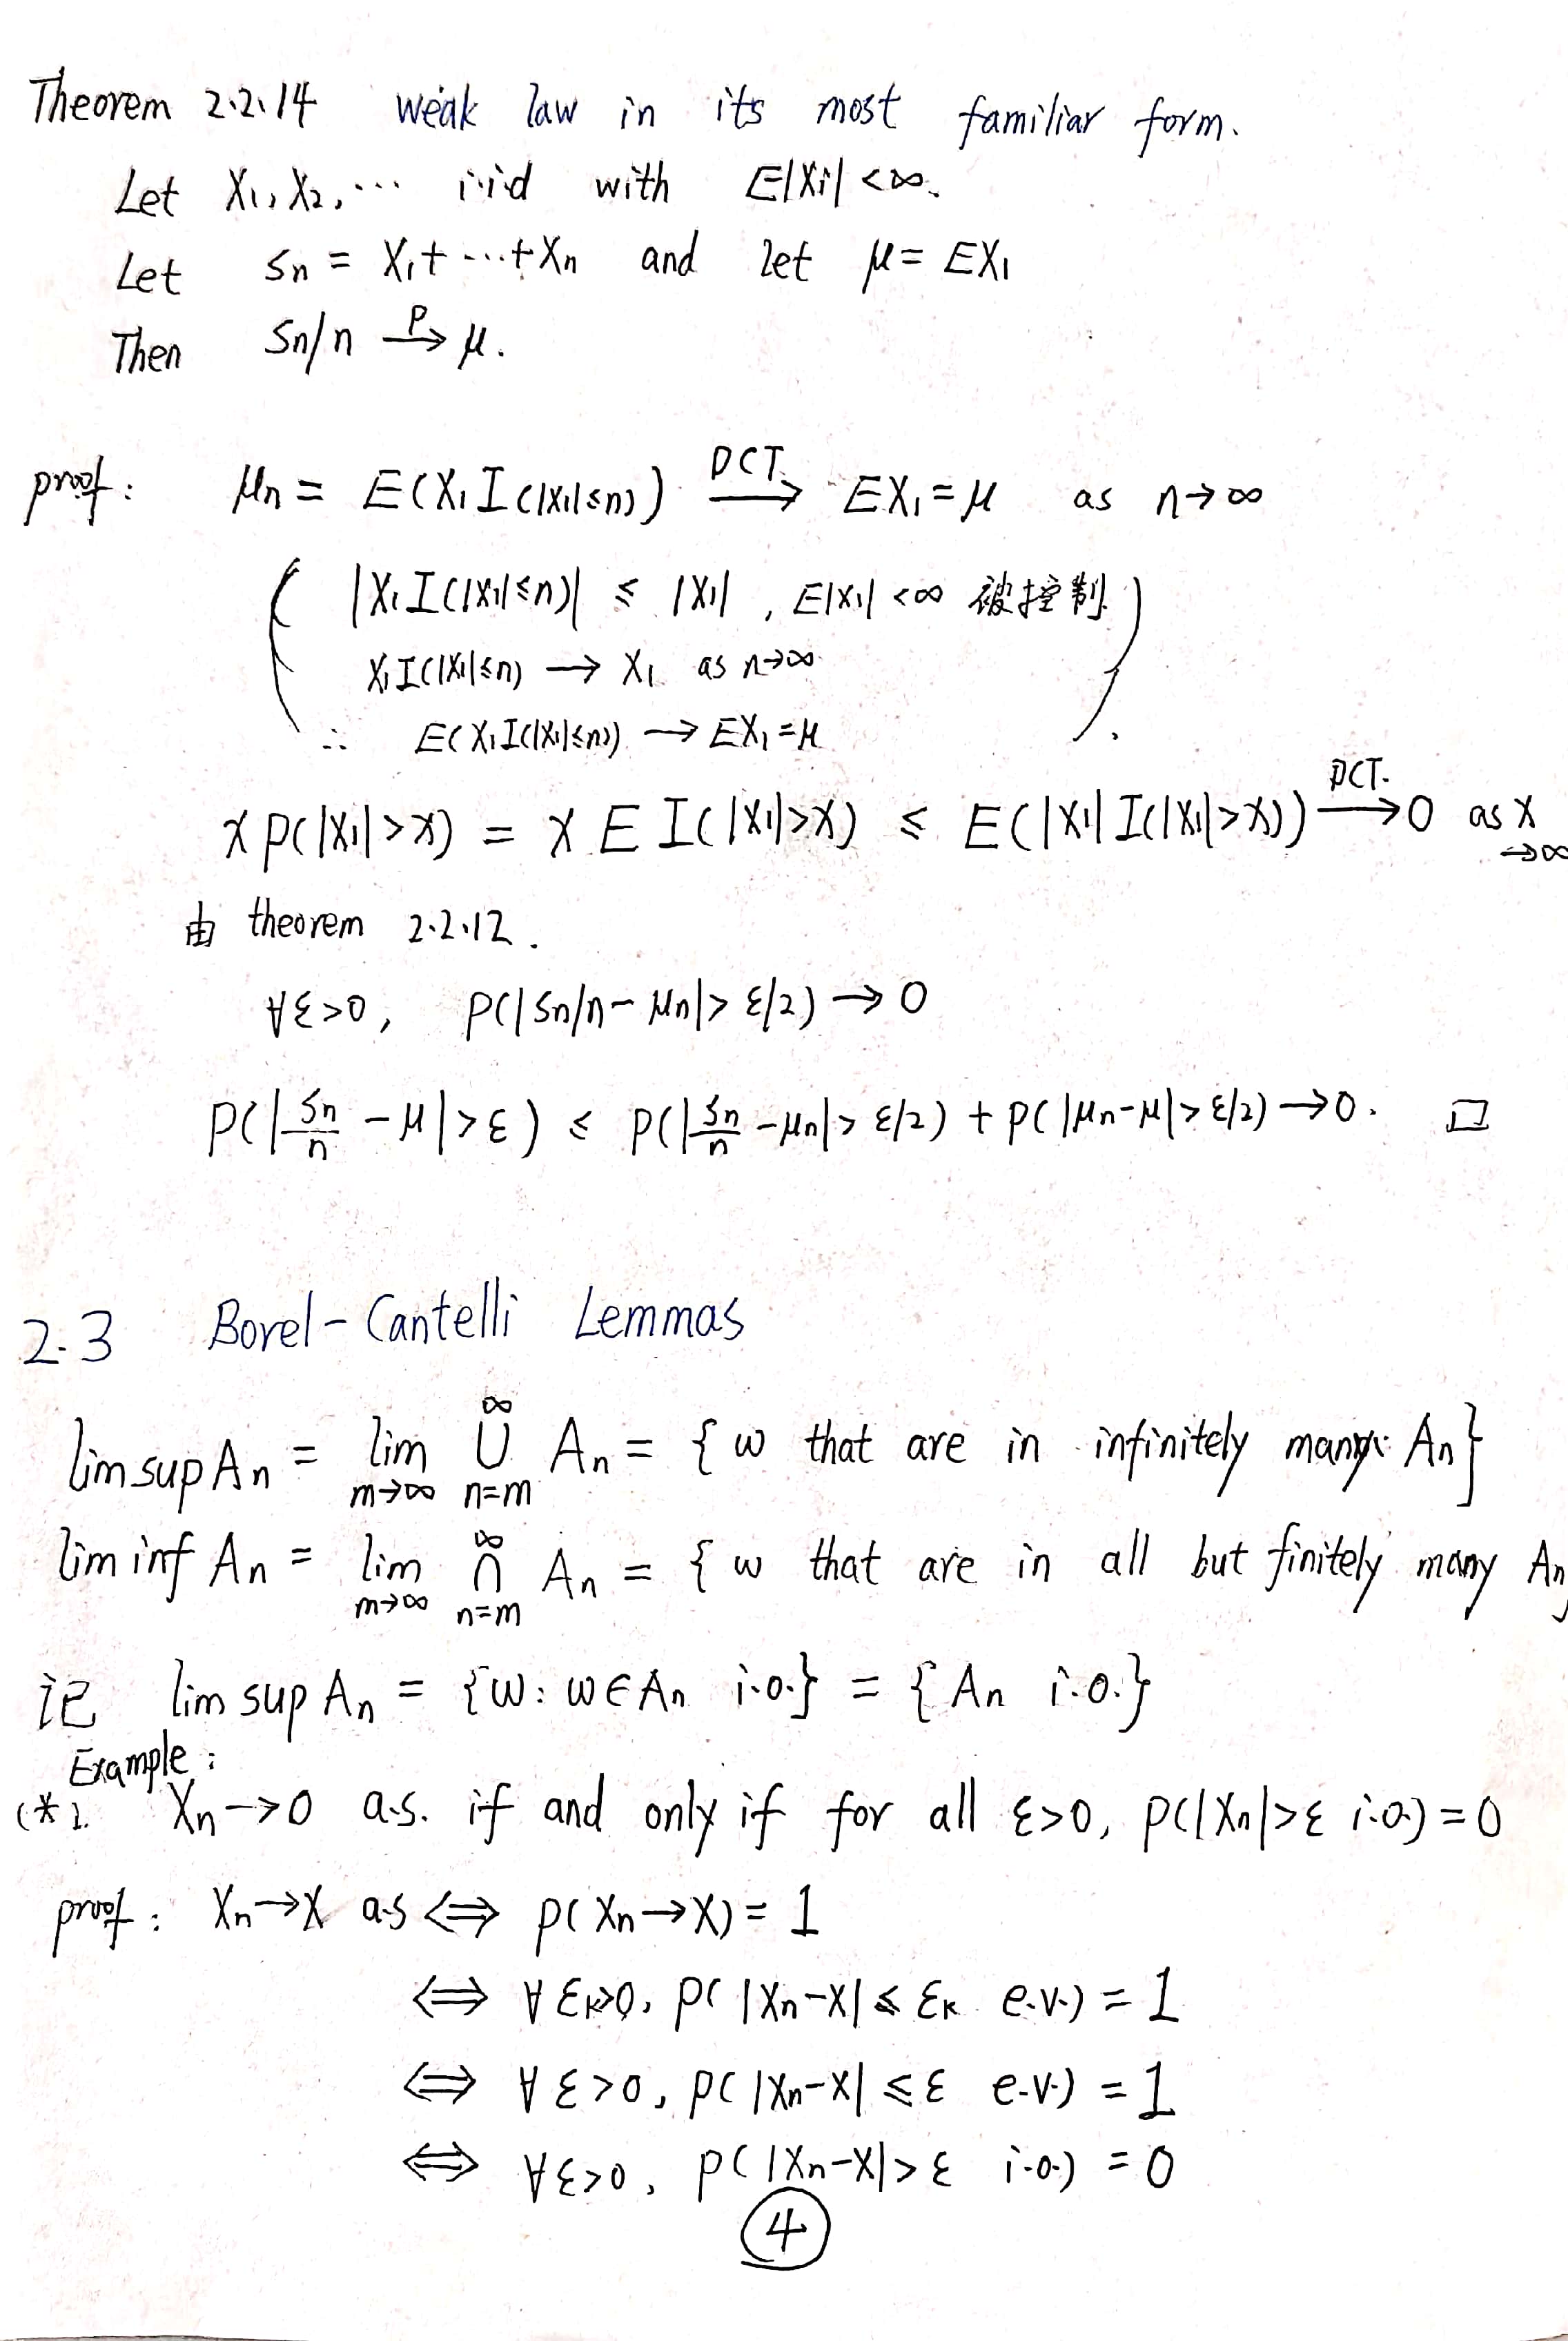 Theorem 2.2.14 weak law in its most familiar form.
Let X₁, X₂, ⋯ i.i.d with E|Xi| < ∞.
Let Sn = X₁ + ⋯ + Xn and let μ = EX₁
Then Sn/n →ᴾ μ.
proof: μn = E(X₁ I(|X₁|≤n)) —DCT.→ EX₁ = μ as n→∞
( |X₁ I(|X₁|≤n)| ≤ |X₁| , E|X₁| < ∞ 被控制.
X₁ I(|X₁|≤n) → X₁ as n→∞.
∴ E(X₁ I(|X₁|≤n)) → EX₁ = μ ).
x P(|X₁| > x) = x E I(|X₁| > x) ≤ E(|X₁| I(|X₁| > x)) —DCT.→ 0 as x →∞
由 theorem 2.2.12.
∀ε>0, P(|Sn/n − μn| > ε/2) → 0
P(|Sn/n − μ| > ε) ≤ P(|Sn/n − μn| > ε/2) + P(|μn − μ| > ε/2) → 0. □
2.3 Borel-Cantelli Lemmas
lim sup An = lim_{m→∞} ∪_{n=m}^{∞} An = { ω that are in infinitely many An }
lim inf An = lim_{m→∞} ∩_{n=m}^{∞} An = { ω that are in all but finitely many An }
记 lim sup An = {ω: ω∈An i.o.} = { An i.o.}
Example:
(*). Xn → 0 a.s. if and only if for all ε>0, P(|Xn|>ε i.o.) = 0
proof: Xn→X a.s ⇔ P(Xn→X) = 1
⇔ ∀εk>0, P(|Xn−X| ≤ εk e.v.) = 1
⇔ ∀ε>0, P(|Xn−X| ≤ ε e.v.) = 1
⇔ ∀ε>0, P(|Xn−X| > ε i.o.) = 0
④